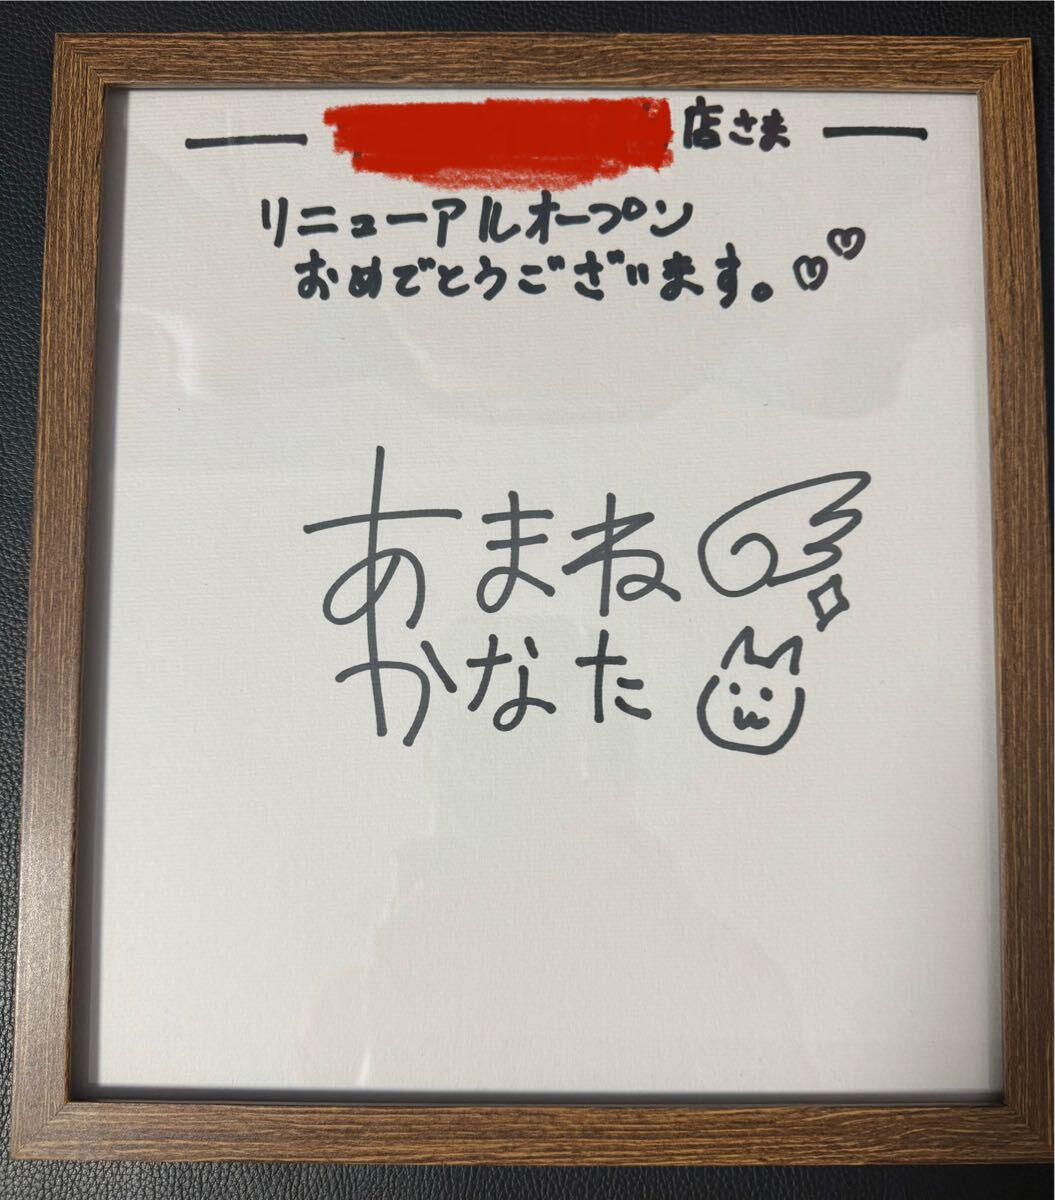 店さま
リニューアルオープン
おめでとうございます。♡♡
あまね
かなた